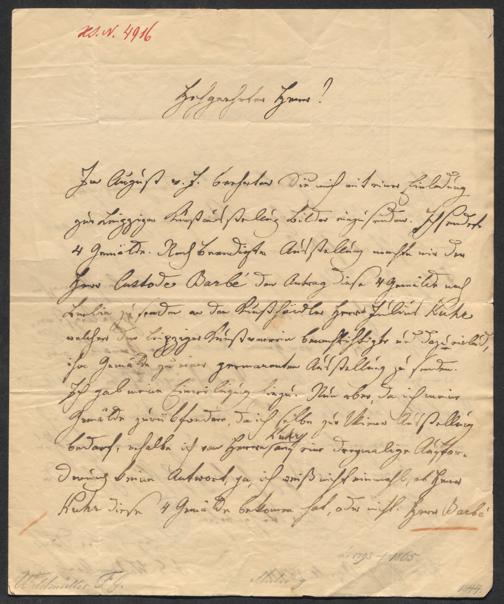 H.I.N. 4916
Hochgeehrter Herr!
Im August v. J. beehrten Sie mich mit einer Einladung
zur Leipziger Kunstausstellung Bilder einzusenden. Ich sendete
4 Gemälde. Nach beendigter Ausstellung machte mir der
Herr Custode Barbé den Antrag diese 4 Gemälde nach
Berlin zu senden an den Kunsthändler Herrn Julius Kuhr
welcher den Leipziger Kunstverein
ihn Gemälde zu einer permanenten Ausstellung zu senden.
Ich gab meine Einwilligung hiezu. Nun aber, da ich meine
Gemälde zurückfordere, da ich selbe zur Wiener Ausstellung
bedarf, erhalte ich von Herrn Kuhr auf eine dreymalige Auffor-
derung keine Antwort, ja, ich weiß nicht einmahl, ob Herr
Kuhr diese 4 Gemälde bekomen hat, oder nicht. Herr Barbé
1793 † 1865
Waldmüller F. G.
1844